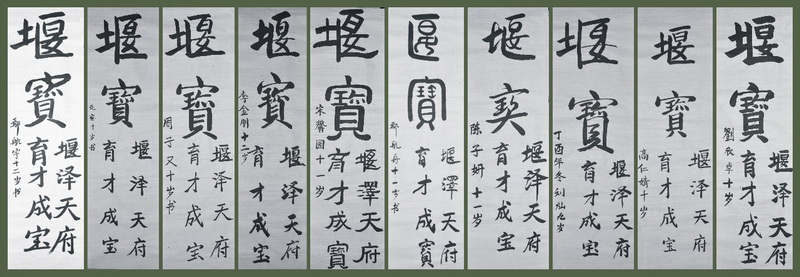 堰寶
堰泽天府
育才成宝
十二岁书
堰寶
堰泽天府
育才成宝
十岁书
堰寶
堰泽天府
育才成宝
周子又十岁书
堰寶
堰泽天府
育才成宝
李金刚十二岁
堰寶
堰澤天府
育才成寶
宋馨园十一岁
寶
堰澤天府
育才成寶
十一岁书
堰
堰泽天府
育才成宝
陈子妍十一岁
堰寶
堰泽天府
育才成宝
丁酉年冬刘灿九岁
堰寶
堰泽天府
育才成宝
高仁婧十岁
堰寶
堰泽天府
育才成宝
劉辰卓十岁